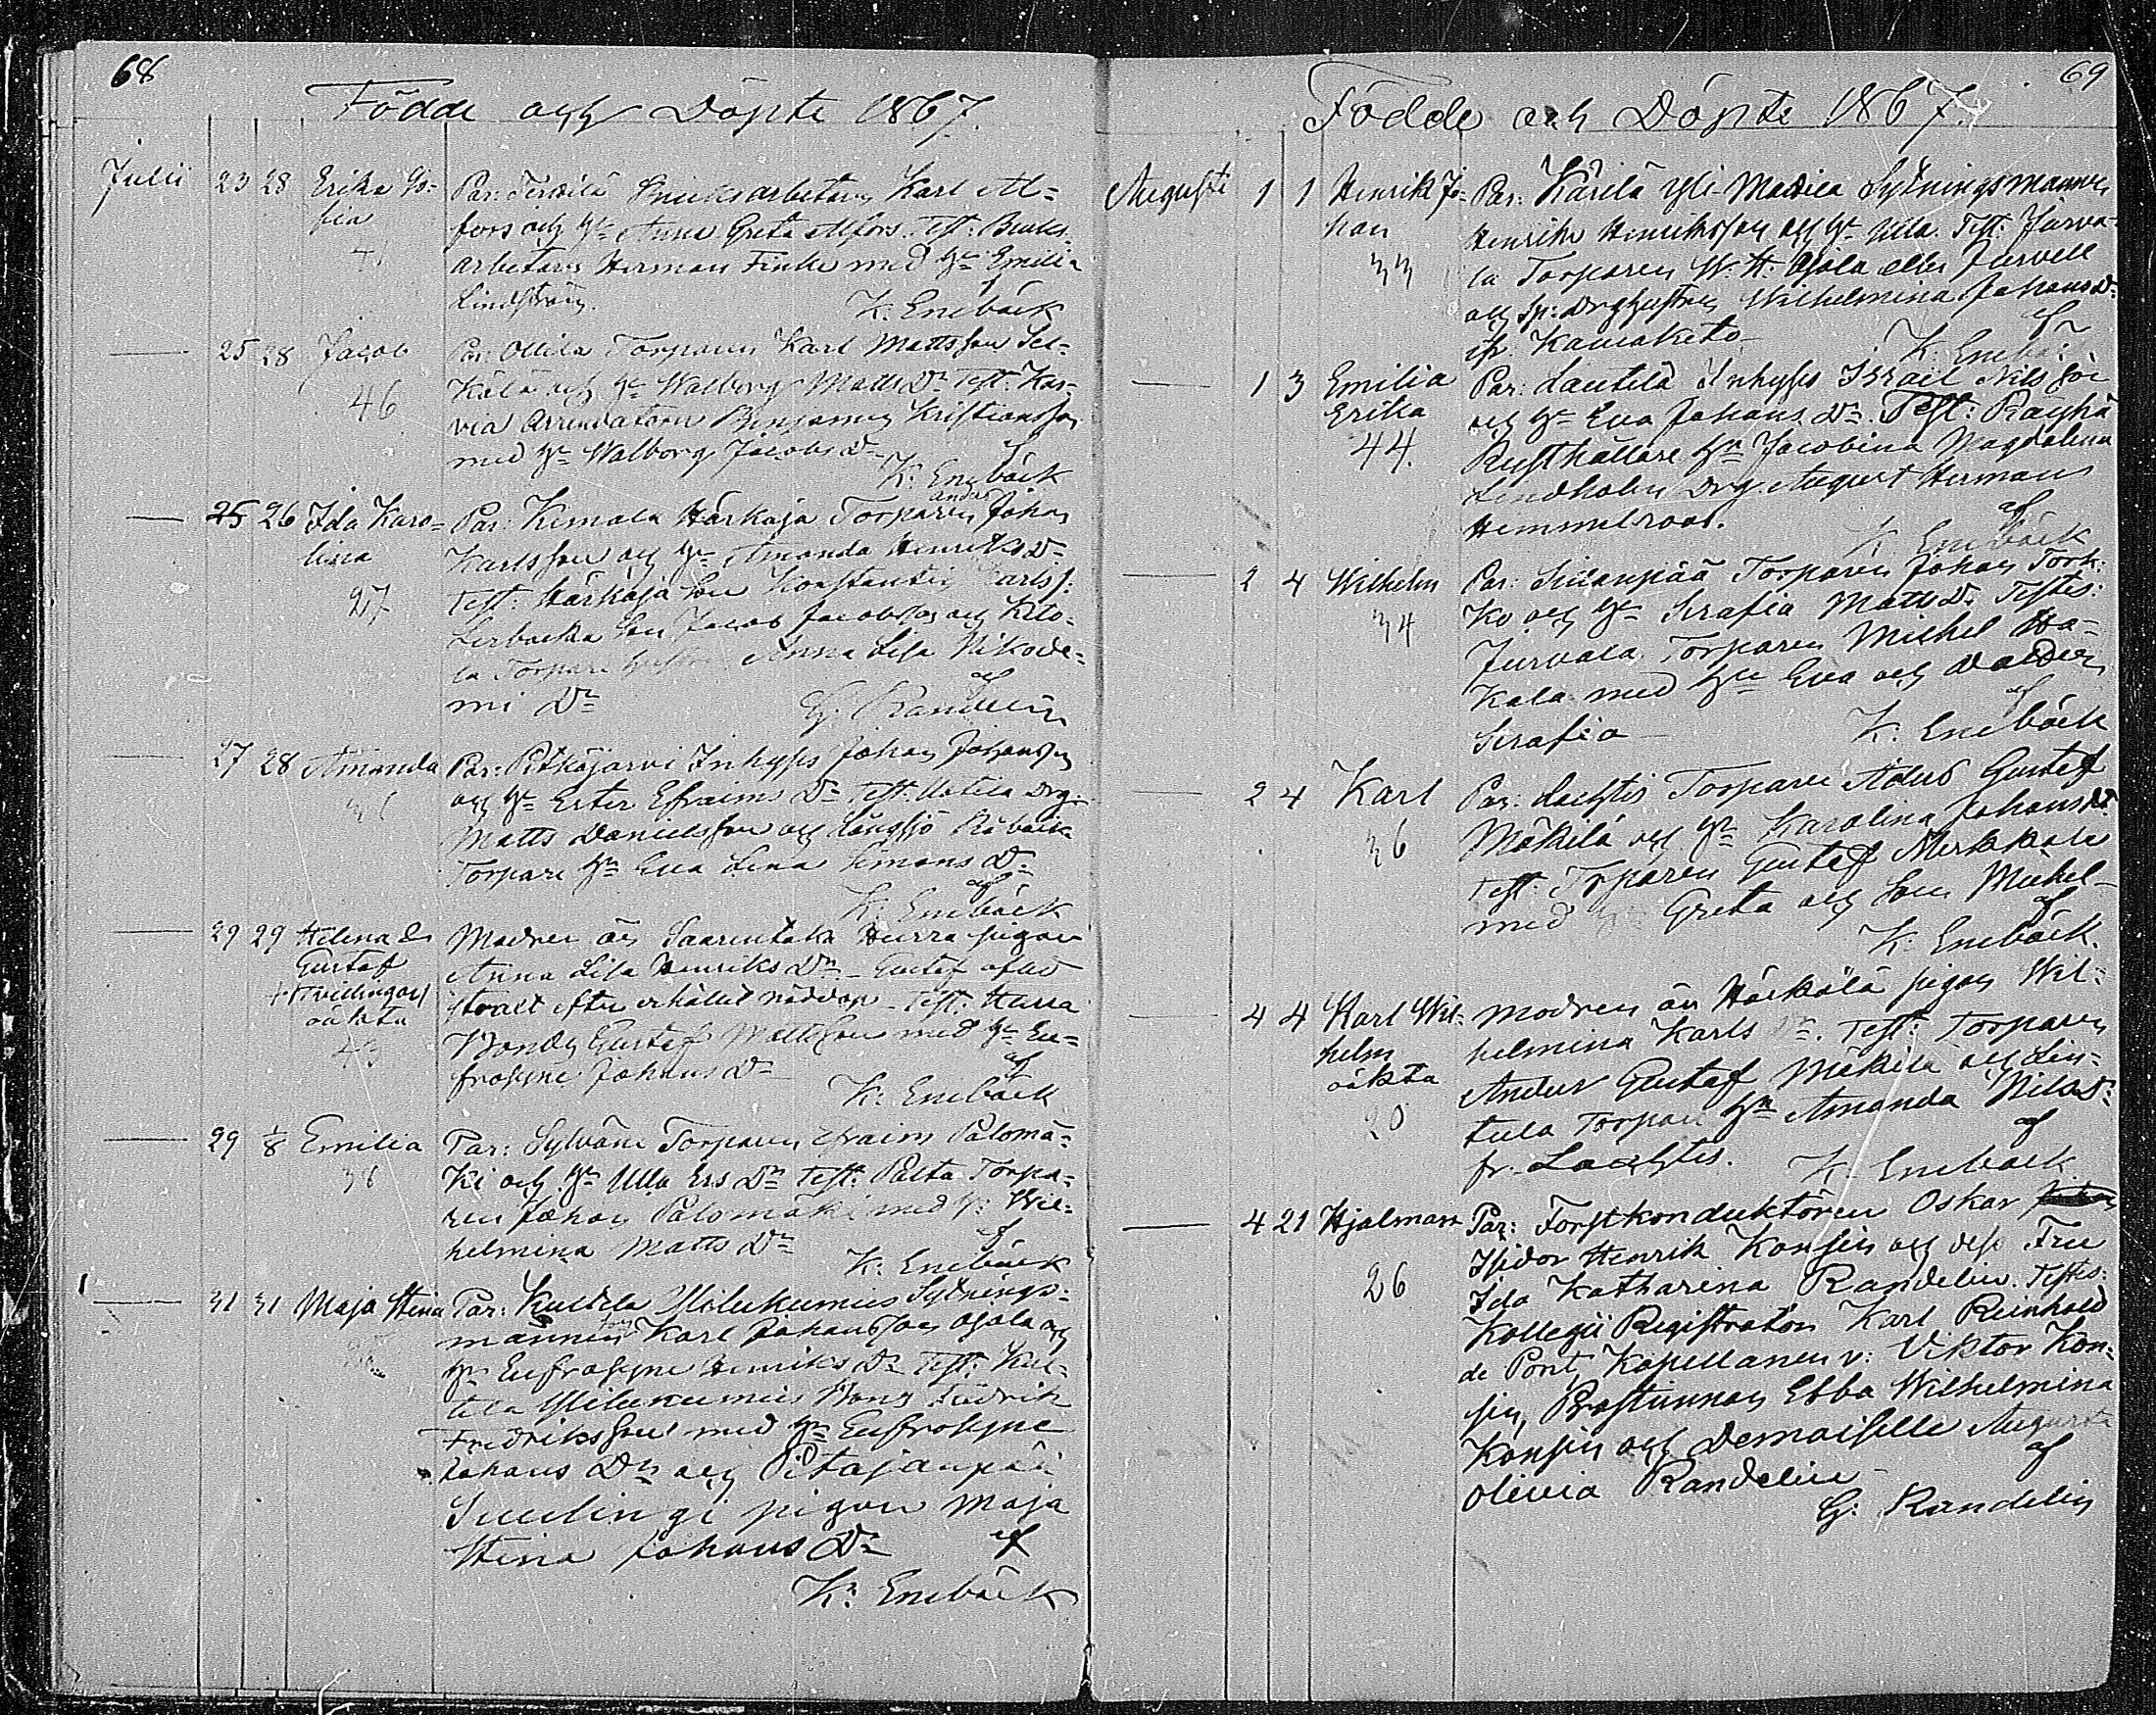 68
Födde och Döpte 1867.
Julii 23 28 Erika So=
fia
Par: Arbetaren Karl Al=
fors och Hu Anna Greta Alfors. Test: Bruks
arbetaren Herman Finke med Hu Emilia
Lindström. af
K: Enebäck
25 28 Jacob
46
Par: Ollila Torparen Karl Mattsson
och Hu Walborg Matts Dr Test: Kar=
via Arrendatorn Benjamin Kristiansson
med Hu Walborg Jacobs Dr af
K: Enebäck
25 26 Ida Karo=
lina
27
Par: Kimala Härkäjä Torparen Johan
Karlsson och Hu Amanda Henriks Dr
Test: Härkäjä Son Konstantin Karls s:
Son Jacob Jacobsson och Kito=
la Torpare Hustru Anna Lisa Nikode=
mi Dr af
G. Randelin
27 28 Amanda
Par: Pitkäjärvi Inhyses Johan Johansson
och Hu Ester Efraims Dr Test: Uotila Drg.
Matts Danielsson och Långsjö Råback
Torpare Hu Eva Lena Simons Dr
af
K: Enebäck
29 29 Helena &
Gustaf
+ Tvillingar
oäkta
43
Modren är Saarentaka Hurra pigan
Anna Lisa Henriks Dr – Gustaf afled
strax efter erhållet nöddop – Test: Hurra
Bonden Gustaf Mattsson med Hu Eu=
frosyne Johans Dr af
K: Enebäck
29 1/8 Emilia
36
Par: Sylvänä Torparen Efraim Palomä=
ki och Hu Ulla Ers Dr Test: Palta Torpa=
ren Johan Palomäki med H: Wil=
helmina Matts Dr af
K: Enebäck
1 31 31 Maja Stina
Par: Kultela Ylikukumies Sytnings=
mannen Karl Johansson Ojala och
Hu Eufrosyne Henriks Dr Test: Kul=
tela Ylikukumies Bond Fredrik
Fredriksson med Hu Eufrosyne
Johans Dr och Pitäjänpää
Suulingi pigan Maja
Stina Johans Dr af
K: Enebäck
69
Födde och Döpte 1867.
Augusti 1 1 Henrik Jo=
han
33
Par: Kärilä Yli Markila Sytningsmannen
Henrik Henriksson och Hu Ulla. Test: Järva=
la Torparen W. H. Ojala eller Jurvell
och Sp: Drghustrun Wilhelmina Johans Dr
ifr. Kauvaketo af
K: Enebäck
1 3 Emilia
Erika
44.
Par: Lautela Inhyses Israel Nilsson
och Hu Eva Johans Dr. Test: Räyhä
Rusthållare Hu Jacobina Magdalena
Lindholm Drg. August Herman
Himmelroos. af
K. Enebäck
2 4 Wilhelm
34
Par: Suonpää Torparen Johan Tork=
ko och Hu Serafia Matts Dr Testes:
Jurvala Torparen Michel Ha=
kala med Hu Eva och Dottren
Serafia – af
K: Enebäck
2 4 Karl
36
Par: Lachtis Torpare Anders Gustaf
Mäkilä och Hu Karolina Johans Dr.
Test: Torparen Gustaf Merkkala
med Hu Greta och Son Michel –
af
K: Enebäck.
4 4 Karl Wil=
helm
oäkta
20
Modren är Härkälä pigan Wil=
helmina Karls Dr. Test: Torparen
Anders Gustaf Mäkilä och Lin=
tula Torpare Hu Amanda Nils Dr
fr. Lachtis. af
K. Enebäck
4 21 Hjalmar
26
Par: Forstkonduktören Oskar
Isidor Henrik Konsin och dess Fru
Ida Katharina Randelin. Testes:
Kollegii Registratorn Karl Reinhold
de Pont, Kapellanen v: Viktor Kon=
sin, Prostinnan Ebba Wilhelmina
Konsin och Demoiselle Augusta
Olivia Randelin – af
G: Randelin